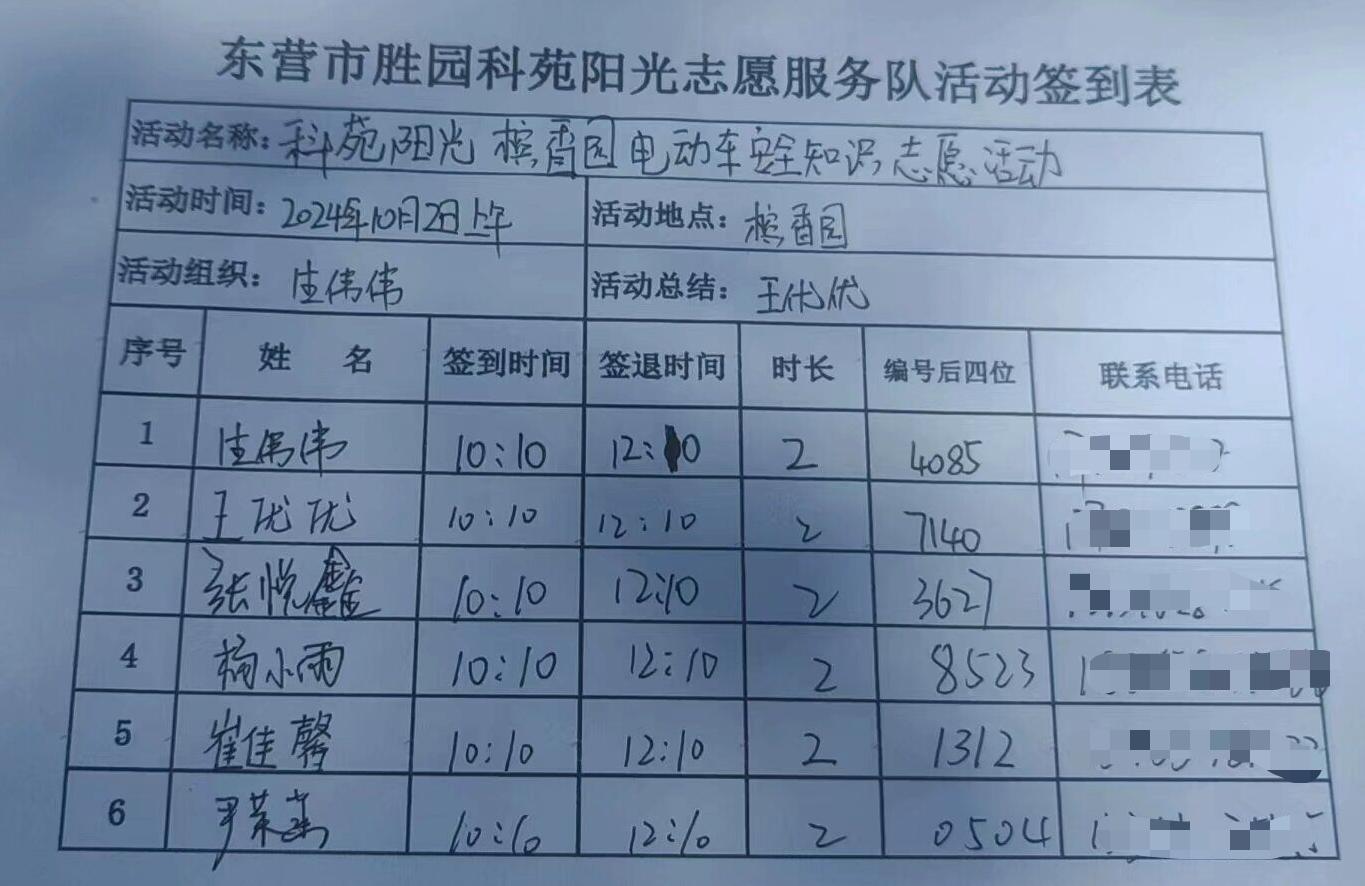 东营市胜园科苑阳光志愿服务队活动签到表
活动名称：科苑阳光槟香园电动车安全知识志愿活动
活动时间：2024年10月2日上午 活动地点：槟香园
活动组织：庄伟伟 活动总结：王优优
序号 姓名 签到时间 签退时间 时长 编号后四位 联系电话
1 庄伟伟 10:10 12:10 2 4085
2 王优优 10:10 12:10 2 7140
3 张悦鑫 10:10 12:10 2 3627
4 杨小雨 10:10 12:10 2 8523
5 崔佳馨 10:10 12:10 2 1312
6 尹 10:10 12:10 2 0504